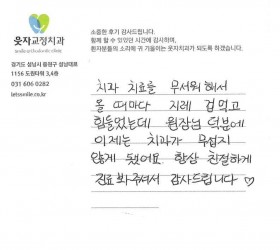 웃자교정치과
경기도 성남시 중원구 성남대로
1156 도원타워 3,4층
031 606 0282
letssmile.co.kr
소중한 후기 감사드립니다.
함께 할 수 있었던 시간에 감사하며,
환자분들의 소리에 귀 기울이는 웃자치과가 되도록 하겠습니다.
치과 치료를 무서워 해서
올 때마다 지레 겁먹고
힘들었는데 원장님 덕분에
이제는 치과가 무섭지
않게 됐어요 항상 친절하게
진료 봐주셔서 감사드립니다 ♡